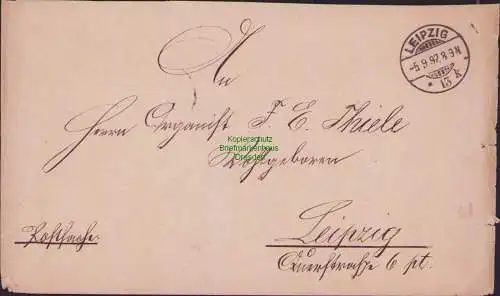 LEIPZIG
-5.9.97.8-9N
* 13 k *
An
Herrn Organist F. E. Thiele
Wohlgeboren
Kopierschutz
Briefmarkenhaus
Dresden
Leipzig
Postsache.
Querstraße 6 pt.